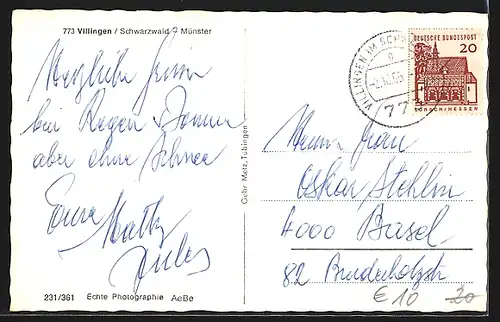 773 Villingen / Schwarzwald - Münster
Herzliche Grüsse
bei Regen + Sonne
aber ohne Schnee
Eure
Gebr. Metz, Tübingen
231/361 Echte Photographie AeBe
VILLINGEN IM SCH
77
DEUTSCHE BUNDESPOST
20
LORSCH/HESSEN
Herrn + Frau
Oskar Stehlin
4000 Basel
82 Bruderholzstr
€ 10 20